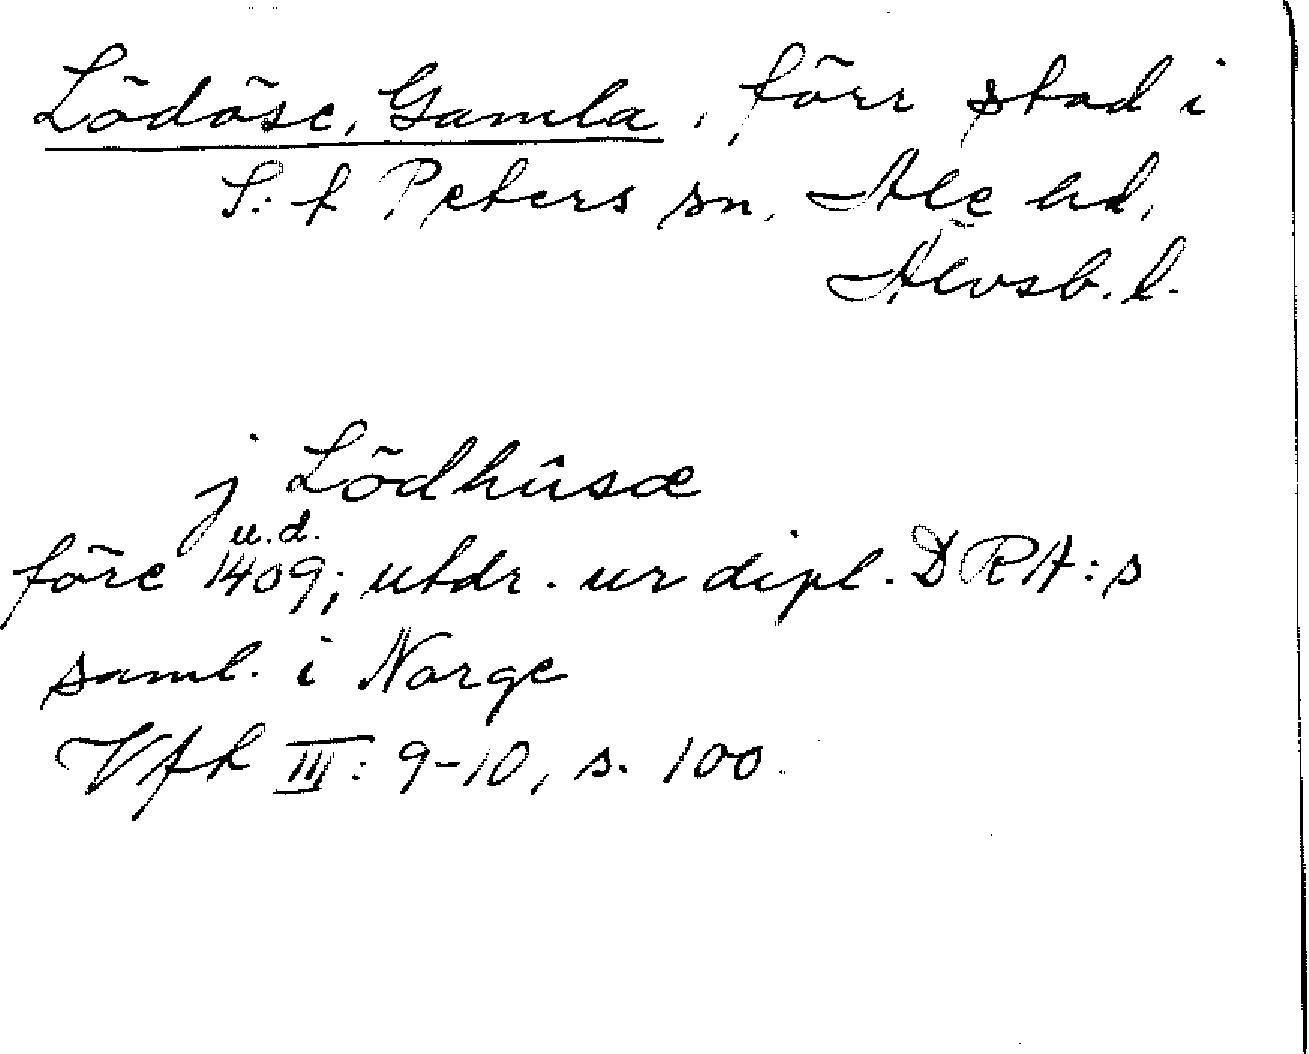 Lödöse, Gamla, förr stad i
S:t Peters sn, Ale hd,
Älvsb. l.
j Lödhûsæ
u.d.
före 1409; utdr. ur dipl. DRA:s
saml. i Norge
VfH III: 9-10, s. 100.